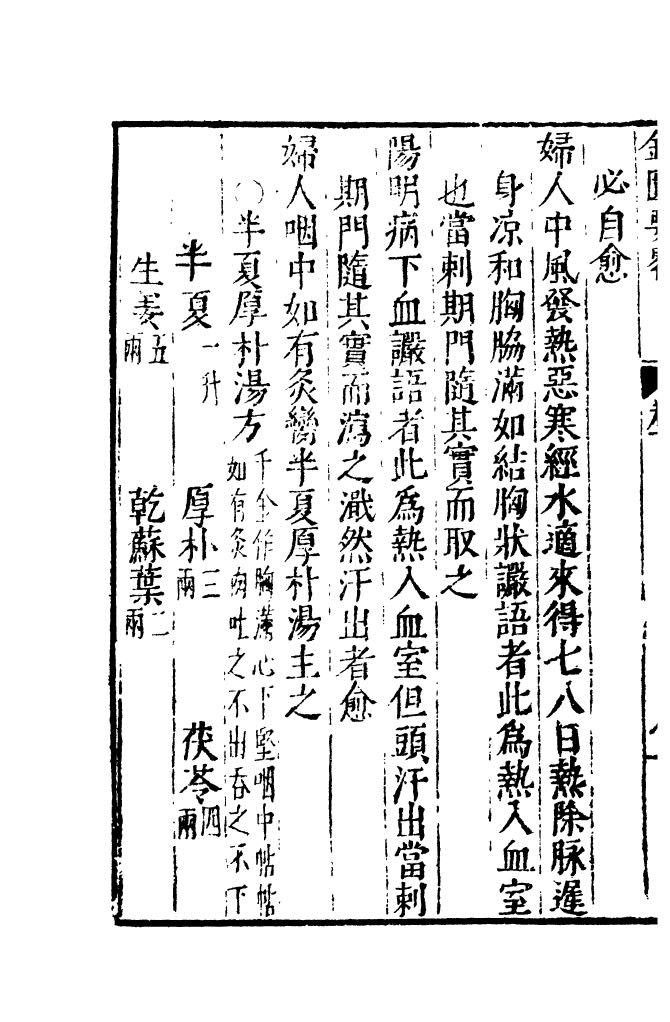 必自愈
婦人中風發熱惡寒經水適來得七八日熱除脉遲
身凉和胸脇滿如結胸狀讝語者此爲熱入血室
也當刺期門隨其實而取之
陽明病下血讝語者此爲熱入血室但頭汗出當刺
期門隨其實而瀉之濈然汗出者愈
婦人咽中如有炙臠半夏厚朴湯主之
○半夏厚朴湯方
千金作胸滿心下堅咽中帖帖
如有炙肉吐之不出吞之不下
半夏一升 厚朴三兩 茯苓四兩
生姜五兩 乾蘇葉二兩